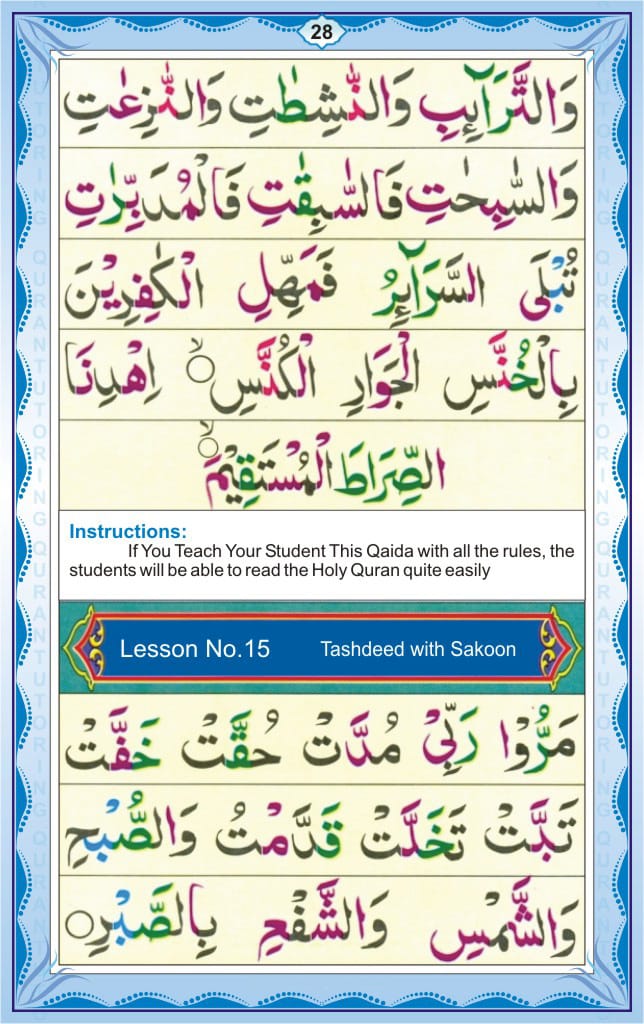 28
وَالتَّرَآئِبِ وَالنّٰشِطٰتِ وَالنّٰزِعٰتِ
وَالسّٰبِحٰتِ فَالسّٰبِقٰتِ فَالْمُدَبِّرٰتِ
تُبْلَى السَّرَآئِرُ فَمَهِّلِ الْكٰفِرِيْنَ
بِالْخُنَّسِ الْجَوَارِ الْكُنَّسِ ۙ اِهْدِنَا
الصِّرَاطَ الْمُسْتَقِيْمَ ۙ
Instructions:
If You Teach Your Student This Qaida with all the rules, the
students will be able to read the Holy Quran quite easily
Lesson No.15 Tashdeed with Sakoon
مَرُّوْا رَبِّيْ مُدَّتْ حُقَّتْ خَفَّتْ
تَبَّتْ تَخَلَّتْ قَدَّمْتُ وَالصُّبْحِ
وَالشَّمْسِ وَالشَّفْعِ بِالصَّبْرِ ○
QURAN TUTORING QURAN TUTORING QURAN TUTORING